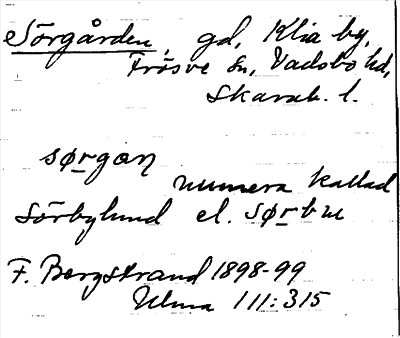 Sörgården, gd, Klia by,
Frösve sn, Vadsbo hd,
Skarab. l.
sørgan
numera kallad
Sörbylund el. sørbu
F. Bergstrand 1898-99
Ulma 111:315